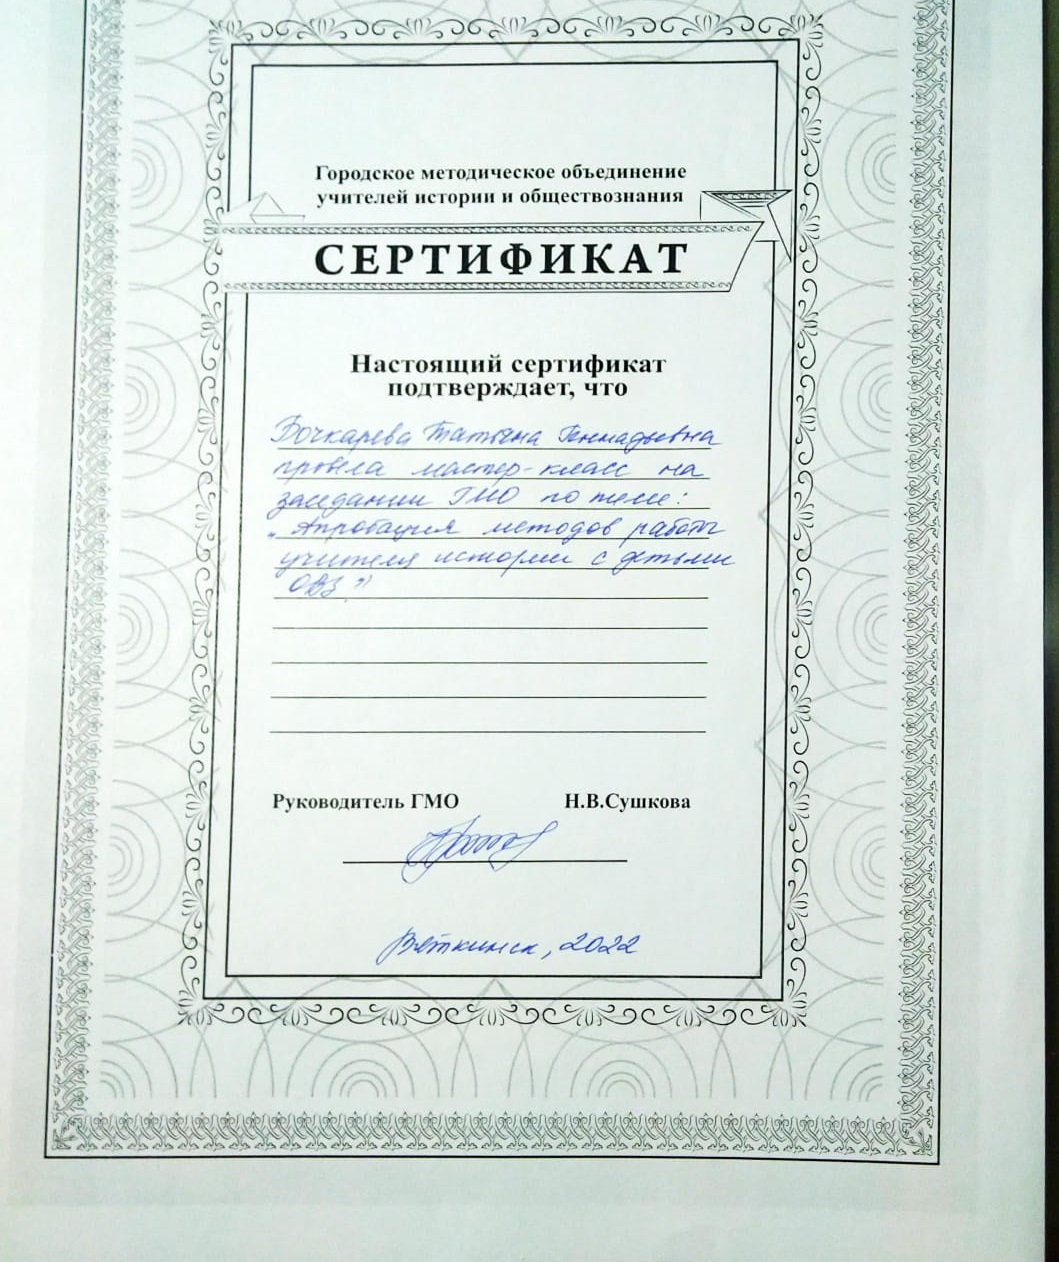 Городское методическое объединение
учителей истории и обществознания
СЕРТИФИКАТ
Настоящий сертификат
подтверждает, что
Бочкарева Татьяна Геннадьевна
провела мастер-класс на
заседании ГМО по теме:
"Апробация методов работы
учителя истории с детьми
ОВЗ."
Руководитель ГМО Н.В.Сушкова
Вяткинск, 2022